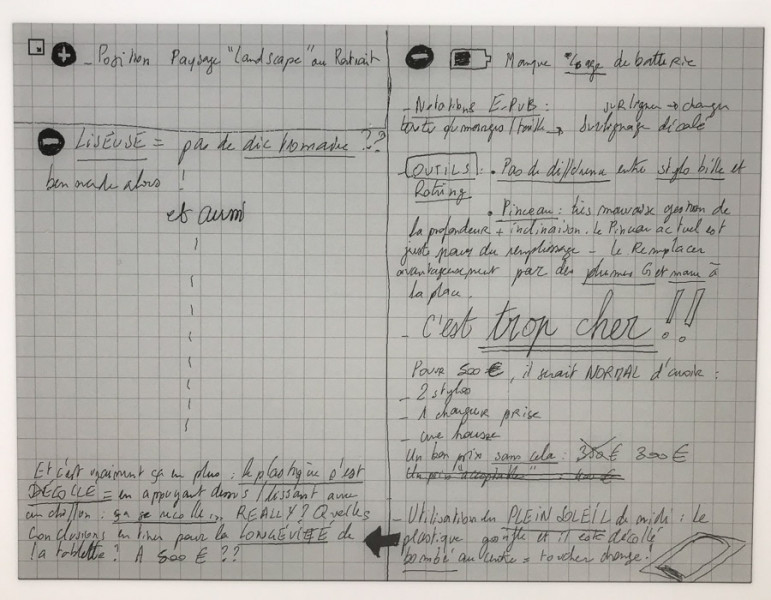 + - Position Paysage "landscape" ou Portrait
- LISEUSE = pas de dictionnaire ??
ben merde alors !
et aussi
Et c'est vraiment ça en plus : le plastique s'est
DÉCOLLÉ = en appuyant dessus / lissant avec
un chiffon : ça se recolle... REALLY ? Quelles
conclusions en tirer pour la LONGÉVITÉ de
la tablette ? A 500 € ??
- Manque de batterie
- Notations E-PUB : surligner → changer
taille → surlignage décalé
- OUTILS : • Pas de différence entre stylo bille et
Rotring
• Pinceau : très mauvaise gestion de
la profondeur + inclinaison. Le Pinceau actuel est
juste pour du remplissage - le Remplacer
avantageusement par des plumes G et maru à
la place.
- C'est trop cher !!
Pour 500 €, il serait NORMAL d'avoir :
- 2 stylos
- 1 chargeur prise
- une housse
Un bon prix sans cela : 350 € 300 €
Un prix "acceptable" : 400 €
- Utilisation en PLEIN SOLEIL du midi : le
plastique gonfle et il est décollé
bombé au centre = toucher change.